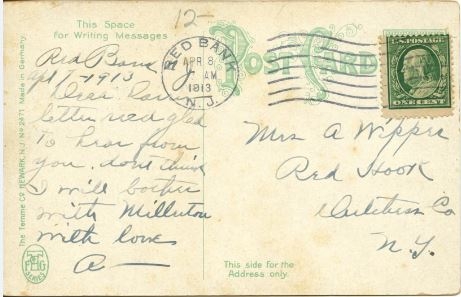 This Space
for Writing Messages
12-
POST CARD
RED BANK
APR 8
AM
1913
N.J.
U.S. POSTAGE
ONE CENT
Red Bank
Apl 7-1913
Dear
letter recd glad
to hear from
you. dont think
I will bother
with Millerton
with love
A
Mrs A Wipper
Red Hook
Dutchess Co
N.Y.
This side for the
Address only.
The Temme Co. NEWARK, N.J. No 2471 Made in Germany.
SERIES